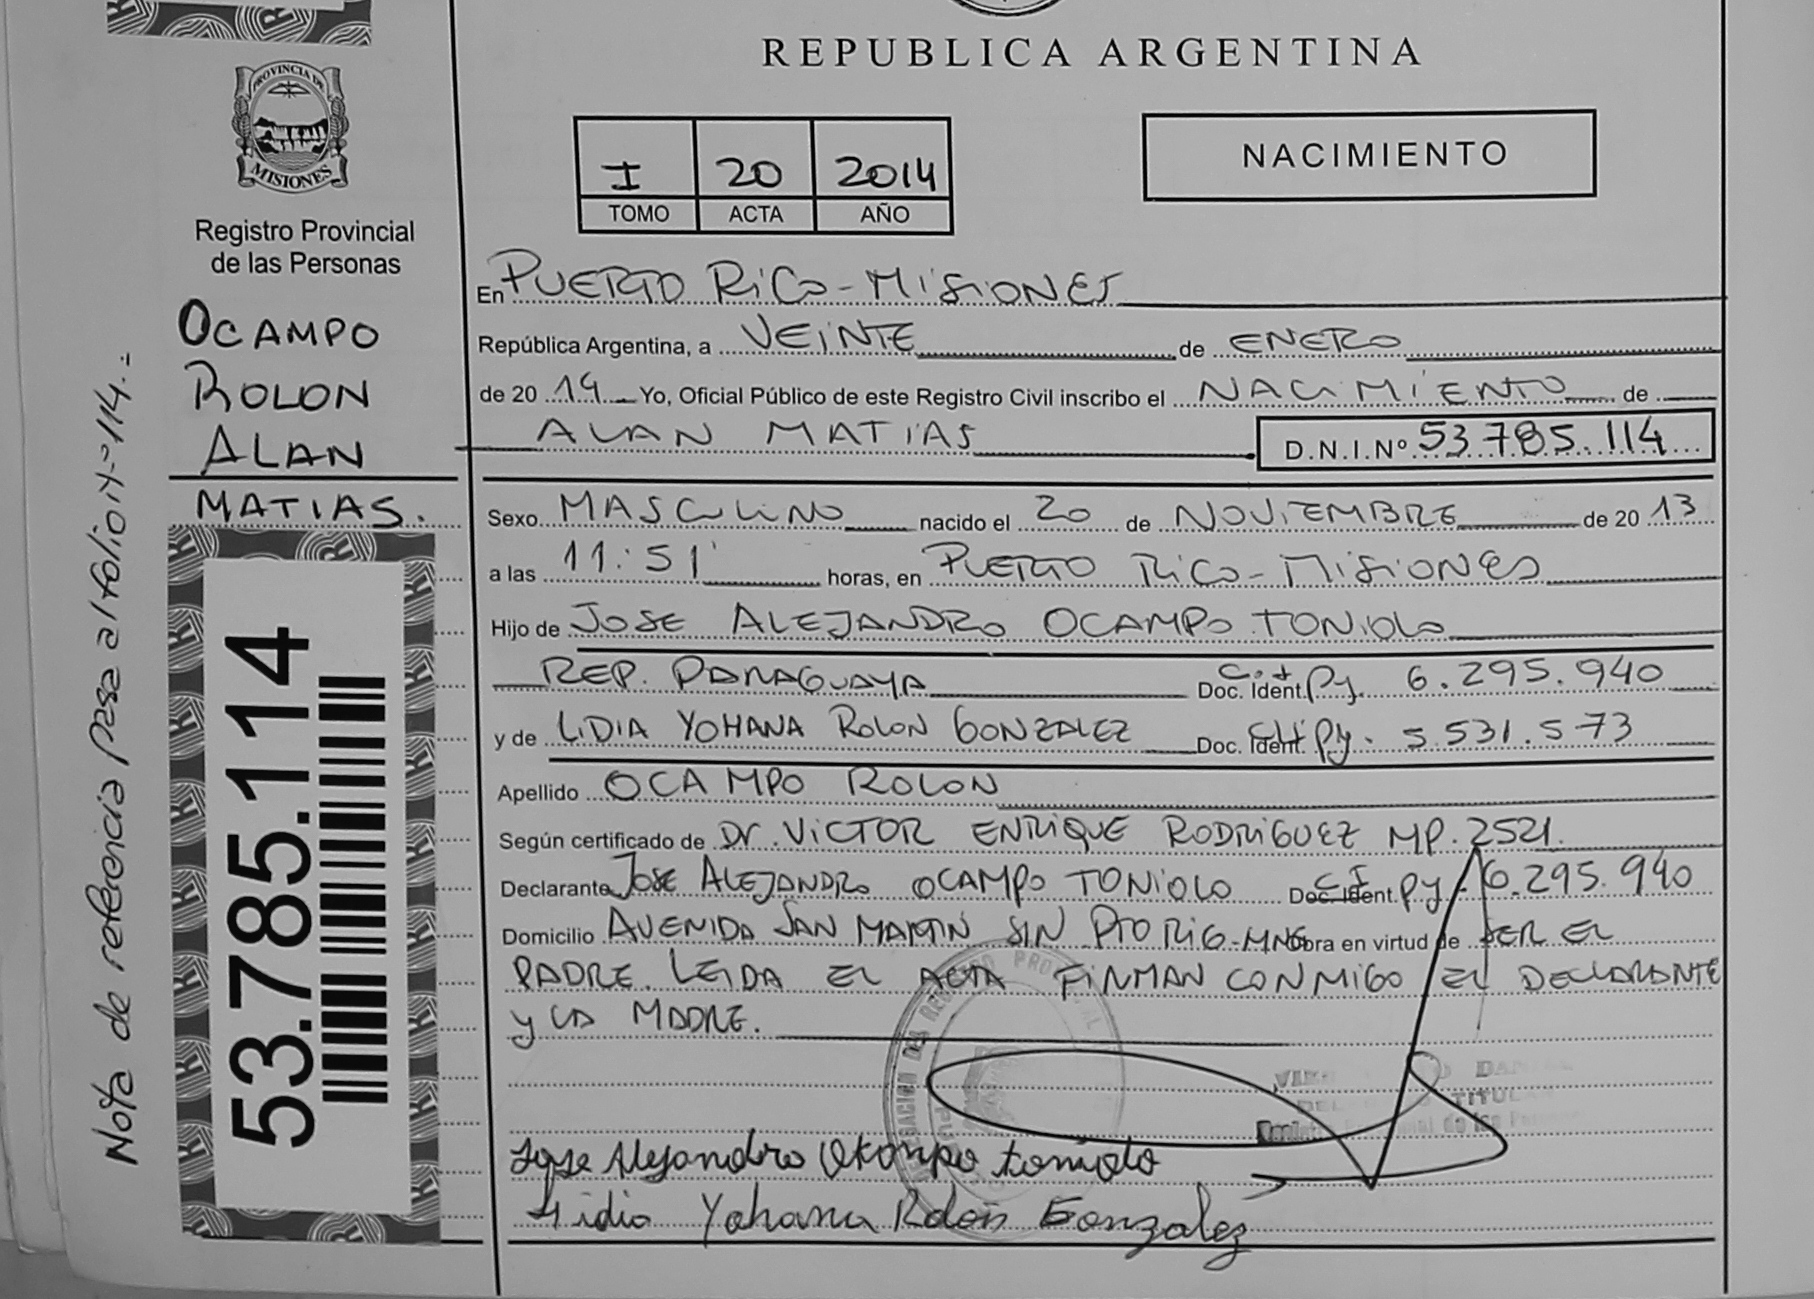 REPUBLICA ARGENTINA
PROVINCIA DE
MISIONES
Registro Provincial
de las Personas
OCAMPO
ROLON
ALAN
MATIAS.
53.785.114
Nota de referencia pasa al folio nº 114.=
I 20 2014
TOMO ACTA AÑO
NACIMIENTO
En PUERTO RICO - MISIONES
República Argentina, a VEINTE de ENERO
de 20 14 Yo, Oficial Público de este Registro Civil inscribo el NACIMIENTO de
ALAN MATIAS D.N.I.Nº 53.785.114
Sexo MASCULINO nacido el 20 de NOVIEMBRE de 20 13
a las 11:51 horas, en PUERTO RICO - MISIONES
Hijo de JOSE ALEJANDRO OCAMPO TONIOLO
REP. PARAGUAYA Doc. Ident. Py. 6.295.940
y de LIDIA YOHANA ROLON GONZALEZ Doc. Ident. Py. 5.531.573
Apellido OCAMPO ROLON
Según certificado de Dr. VICTOR ENRIQUE RODRIGUEZ MP. 2521.
Declarante JOSE ALEJANDRO OCAMPO TONIOLO Doc. Ident. C.I. Py. 6.295.940
Domicilio AVENIDA SAN MARTIN S/N PTO RICO-MNES obra en virtud de SER EL
PADRE. LEIDA EL ACTA FIRMAN CONMIGO EL DECLARANTE
y LA MADRE.
TITULAR
Jose Alejandro Ocampo toniolo
Lidia Yohana Rolon Gonzalez